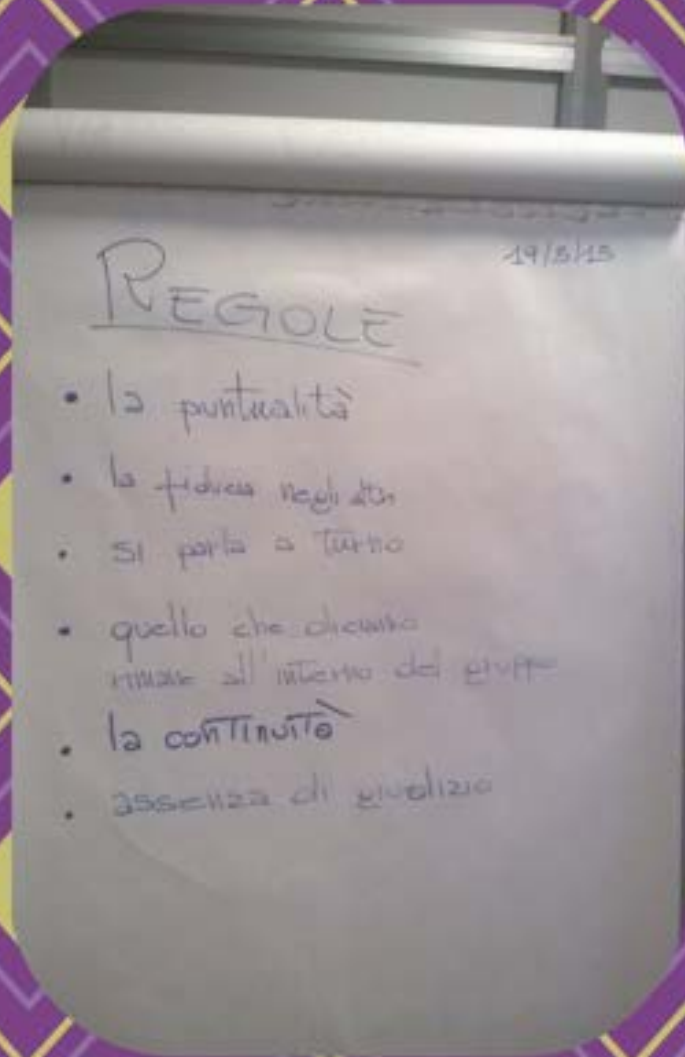 19/5/15
REGOLE
• la puntualità
• la fiducia negli altri
• si parla a turno
• quello che diciamo
rimane all'interno del gruppo
• la continuità
• assenza di giudizio